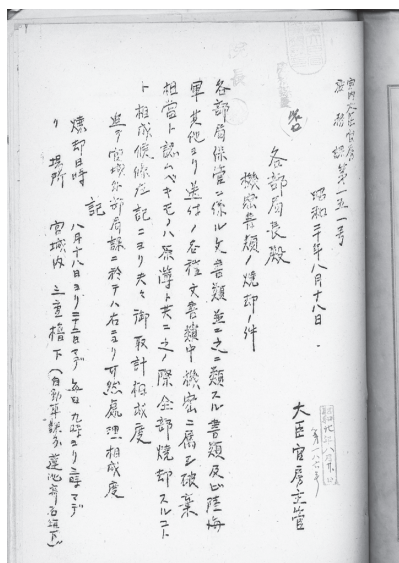 宮内大臣官房
庶務課第一五一号
昭和二十年八月十八日
大臣官房主管
各部局長殿
機密書類ノ焼却ノ件
各部局保管ニ係ル文書類並ニ之ニ類スル書類及ビ陸海
軍其他ヨリ送付ノ各種文書類中機密ニ属シ破棄
相当ト認ムベキモノハ原簿ト共ニ之ノ際全部焼却スルコト
ト相成候條左記ニヨリ夫々御取計相成度
追テ宮城外部局課ニ於テハ右ニヨリ可然処理相成度
記
焼却日時 八月十八日ヨリ二十二日マデ 毎日九時ヨリ三時マデ
〃 場所 宮城内 三重櫓下(自動車課分蓮池井石垣下)